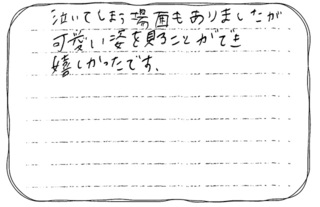 泣いてしまう場面もありましたが
可愛い姿を見ることができ
嬉しかったです、